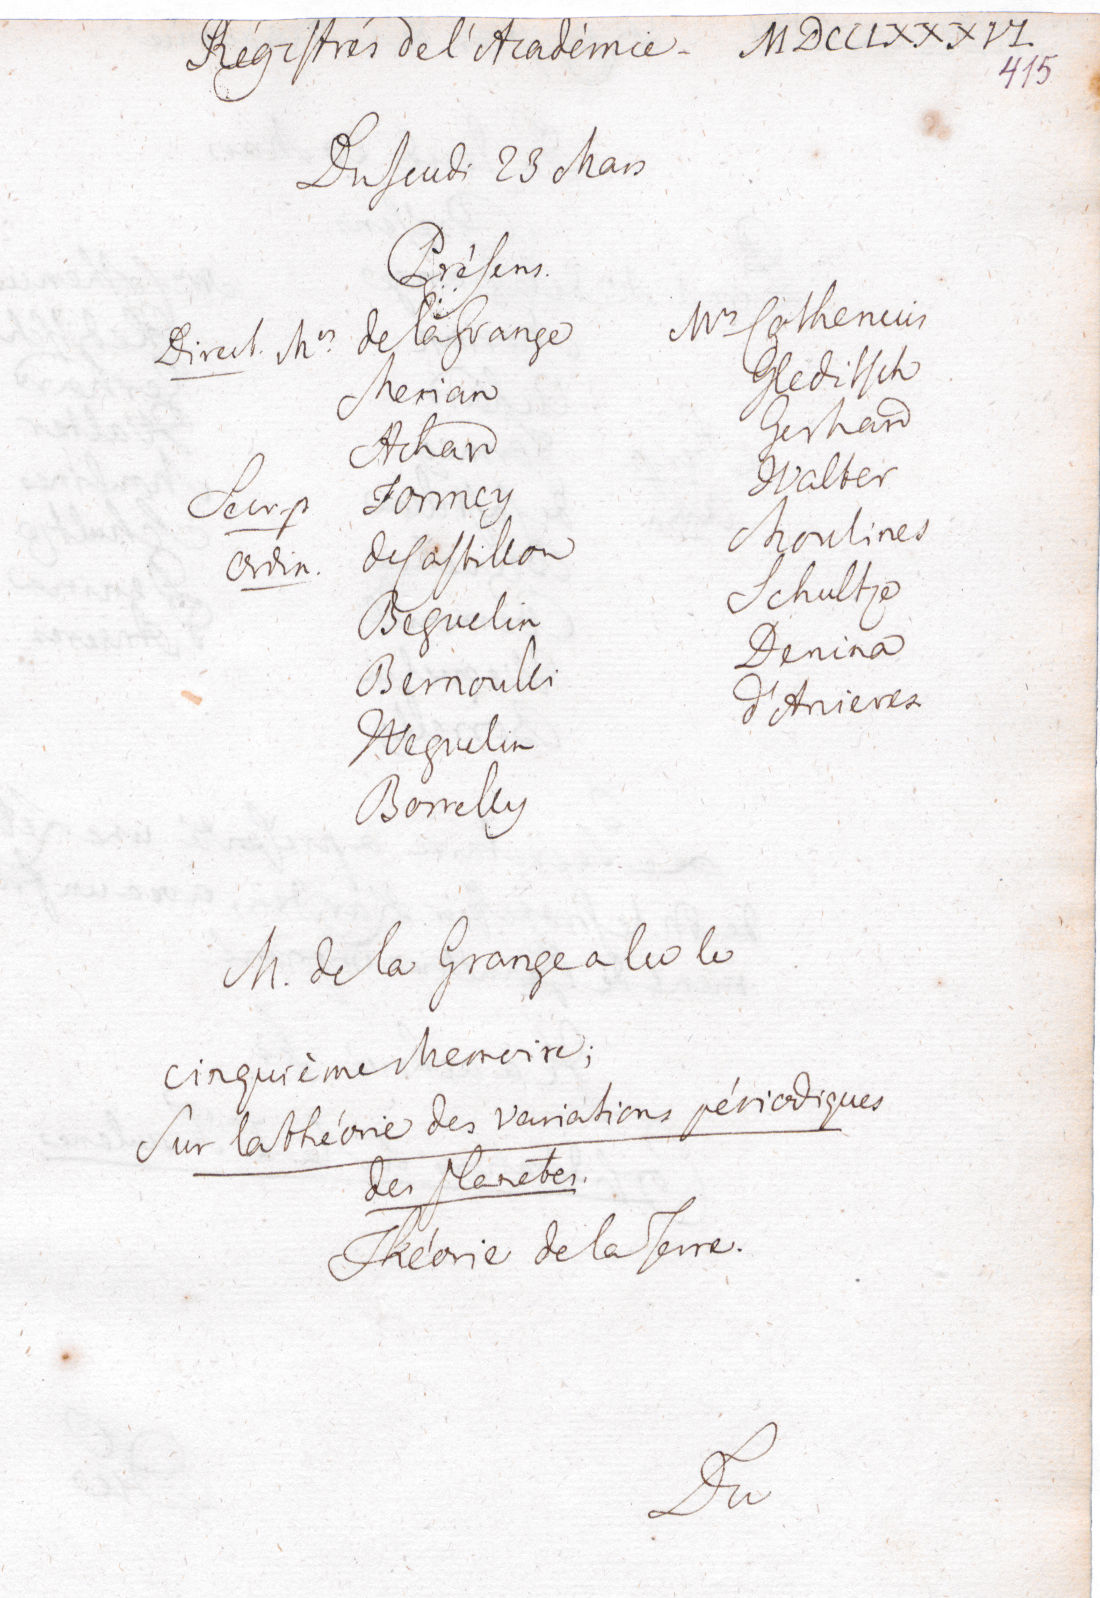 Régistres de l'Académie. MDCCLXXXVI.
415
Du Jeudi 23 Mars
Présens.
Direct. Mrs de la Grange
Merian
Achard
Secr. p Formey
ordin. de Castillon
Beguelin
Bernoulli
Weguelin
Borrelly
Mrs Cothenius
Gleditsch
Gerhard
Walter
Moulines
Schultze
Denina
d'Anieres
M. de la Grange a lu le
cinquième Memoire;
Sur la théorie des variations périodiques
des planetes.
Théorie de la Terre.
Du